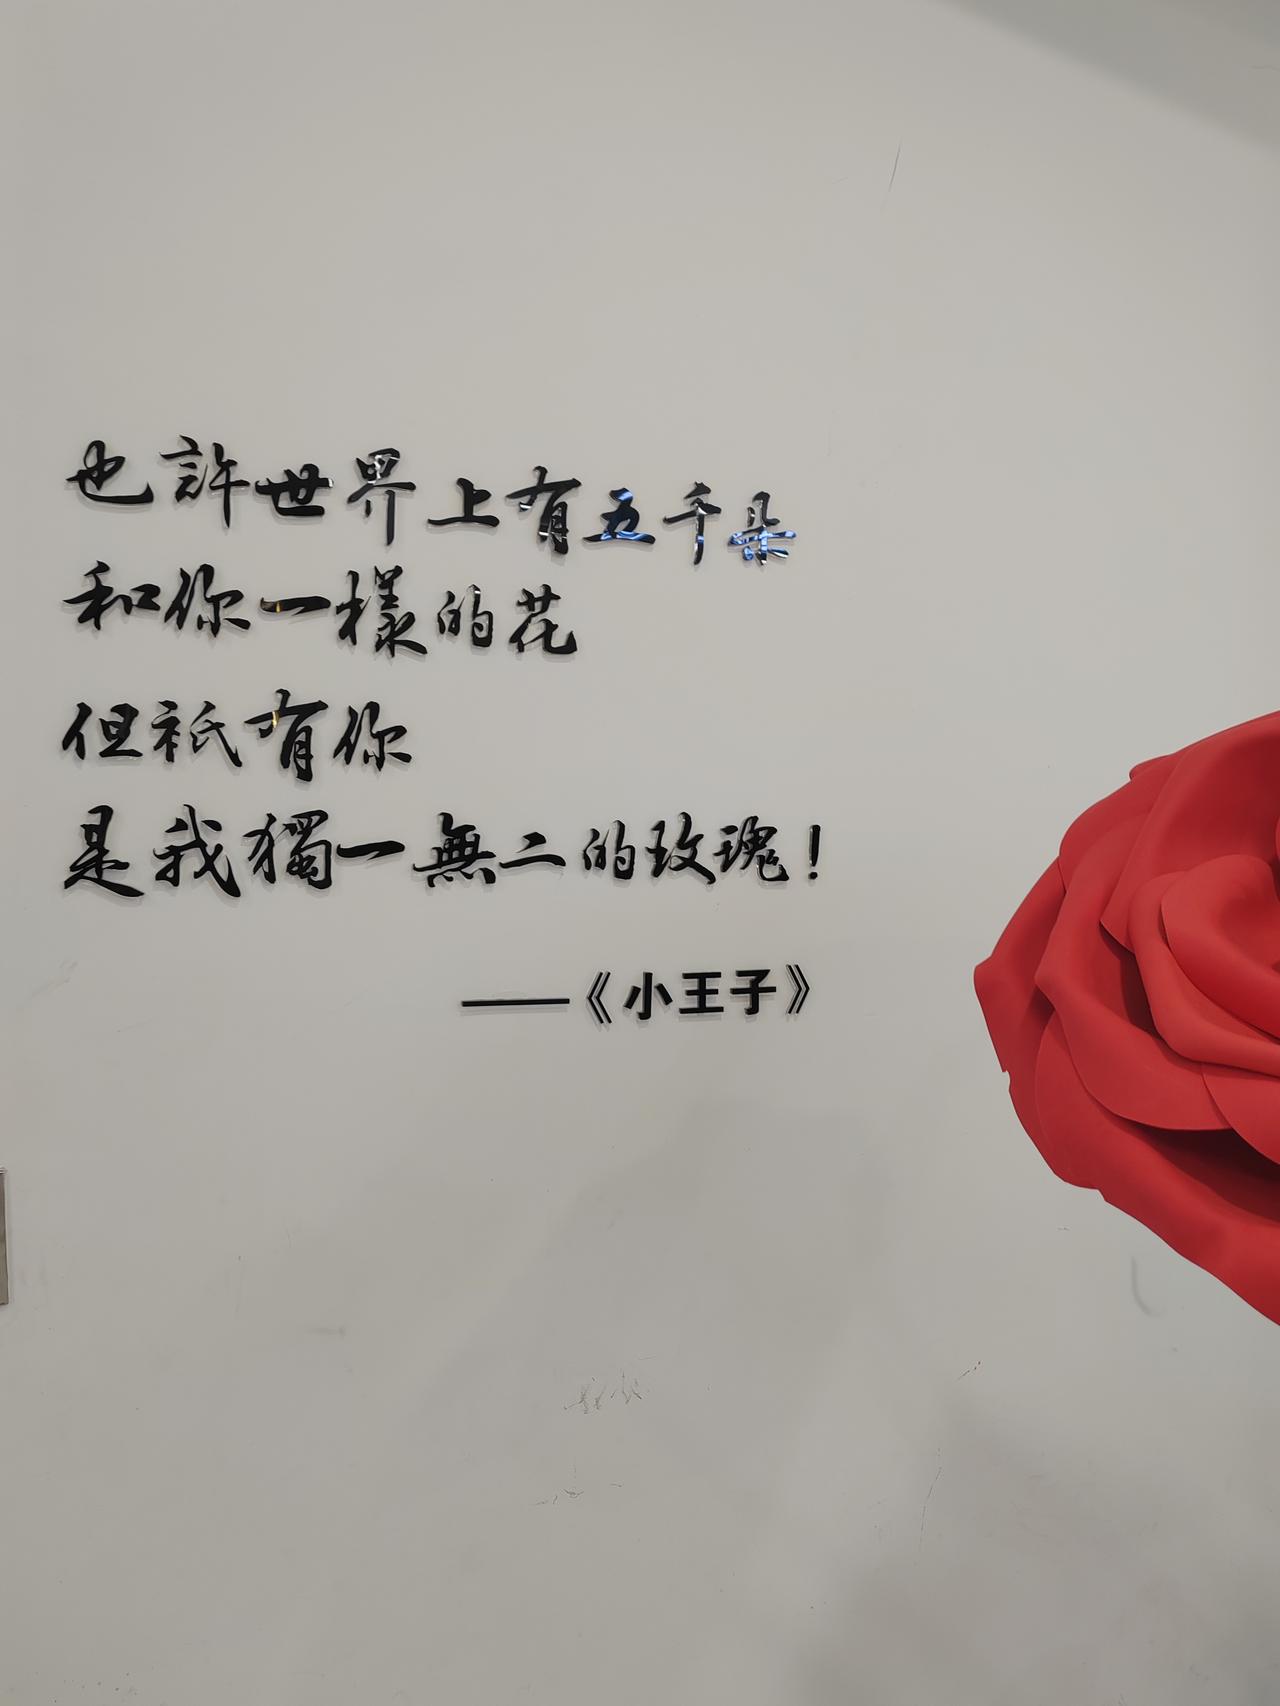 也許世界上有五千朵
和你一樣的花
但祇有你
是我獨一無二的玫瑰！
——《小王子》